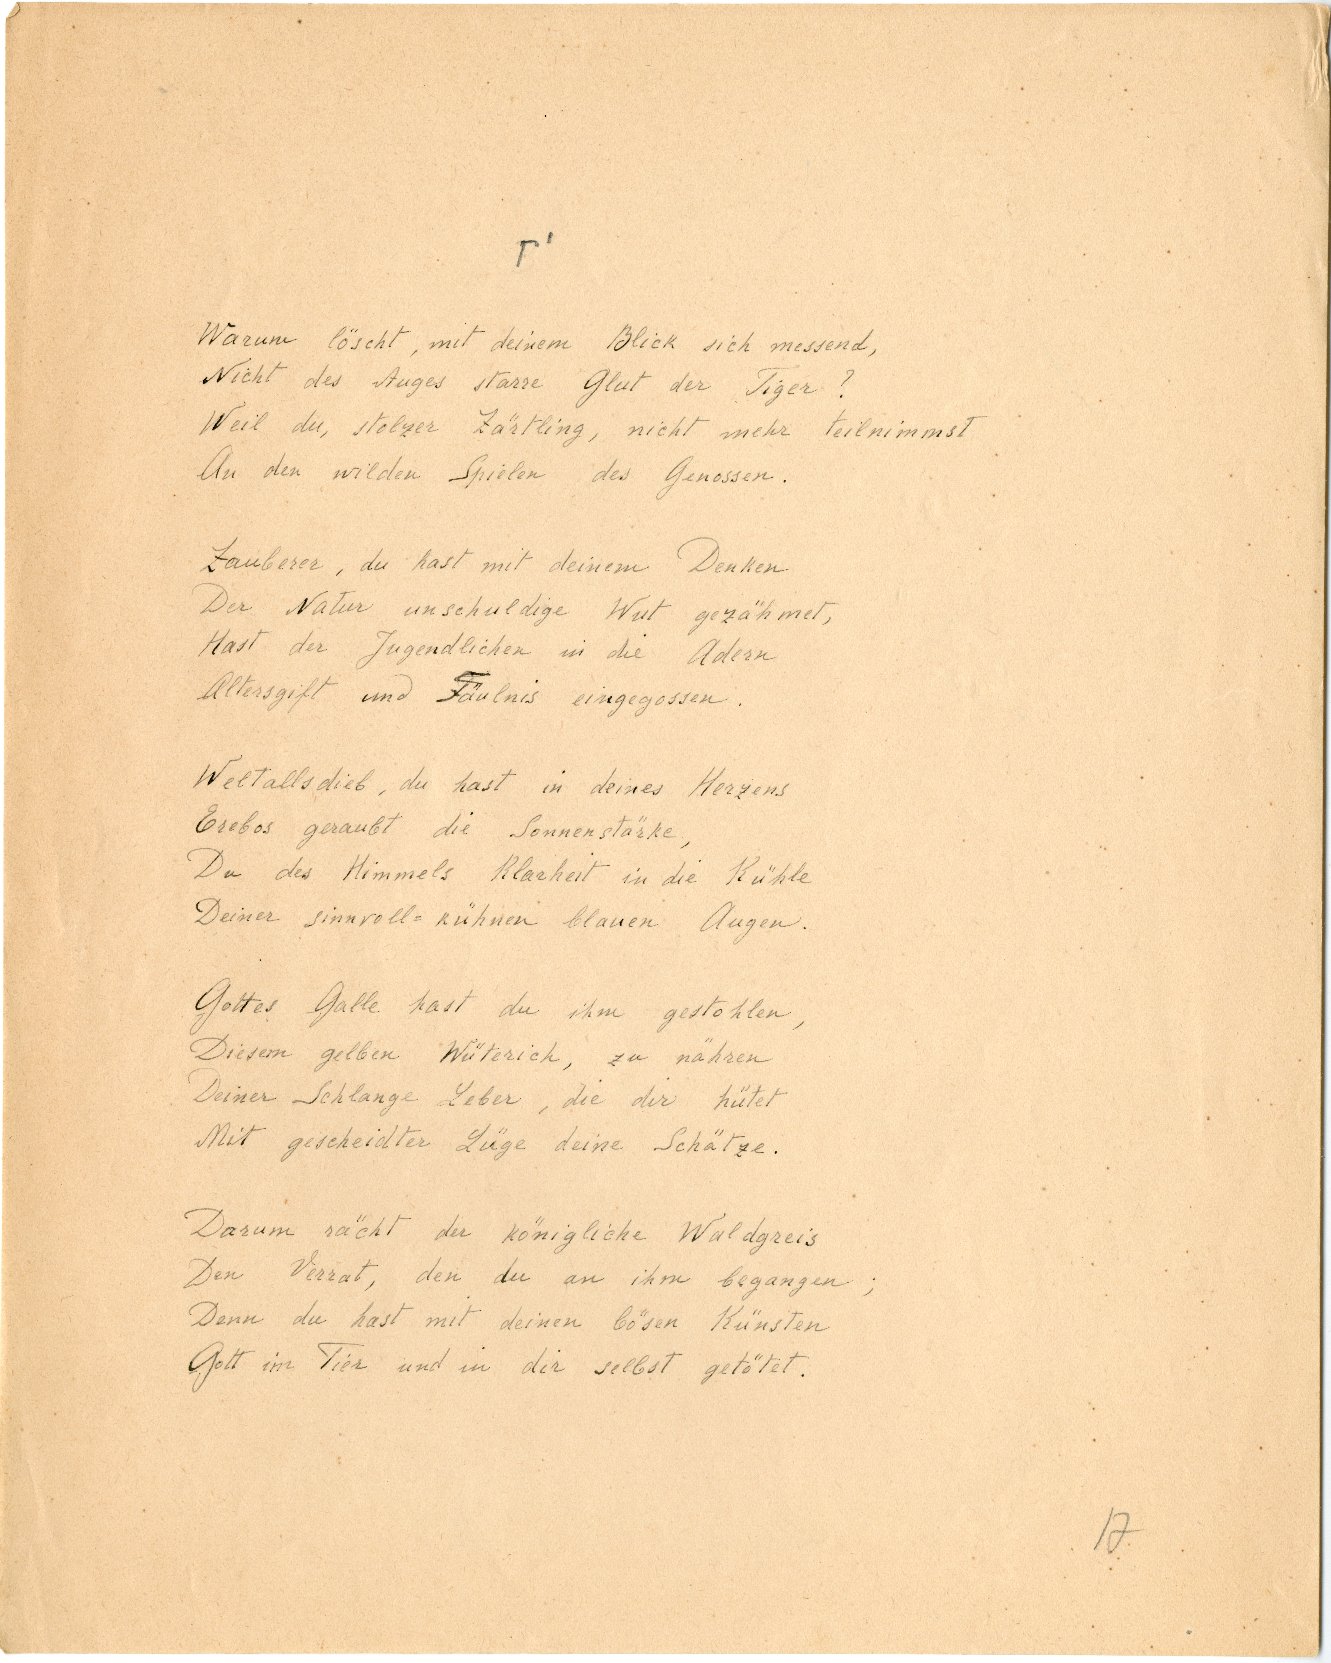 Γ'
Warum löscht, mit deinem Blick sich messend,
Nicht des Auges starre Glut der Tiger?
Weil du, stolzer Zärtling, nicht mehr teilnimmst
An den wilden Spielen des Genossen.
Zauberer, du hast mit deinem Denken
Der Natur unschuldige Wut gezähmet,
Hast der Jugendlichen in die Adern
Altersgift und Fäulnis eingegossen.
Weltallsdieb, du hast in deines Herzens
Erebos geraubt die Sonnenstärke,
Du des Himmels Klarheit in die Kühle
Deiner sinnvoll=kühnen blauen Augen.
Gottes Galle hast du ihm gestohlen,
Diesem gelben Wüterich, zu nähren
Deiner Schlange Leber, die dir hütet
Mit gescheidter Lüge deine Schätze.
Darum rächt der königliche Waldgreis
Den Verrat, den du an ihm begangen;
Denn du hast mit deinen bösen Künsten
Gott im Tier und in dir selbst getötet.
17